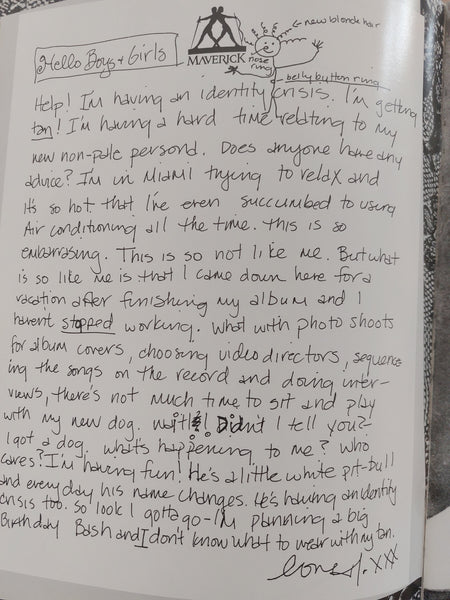 Hello Boys + Girls
MAVERICK
new blonde hair
nose
ring
belly button ring
Help! I'm having an identity crisis. I'm getting
tan! I'm having a hard time relating to my
new non-pale persona. Does anyone have any
advice? I'm in Miami trying to relax and
it's so hot that I've even succumbed to using
Air conditioning all the time. This is so
embarrasing. This is so not like me. But what
is so like me is that I came down here for a
vacation after finishing my album and I
haven't stopped working. What with photo shoots
for album covers, choosing video directors, sequenc
ing the songs on the record and doing inter-
views, there's not much time to sit and play
with my new dog. wait! Didn't I tell you?
I got a dog. what's happening to me? Who
cares? I'm having fun! He's a little white pit-bull
and everyday his name changes. He's having an identity
crisis too. So look I gotta go - I'm planning a big
Birthday Bash and I don't know what to wear with my tan.
XXX